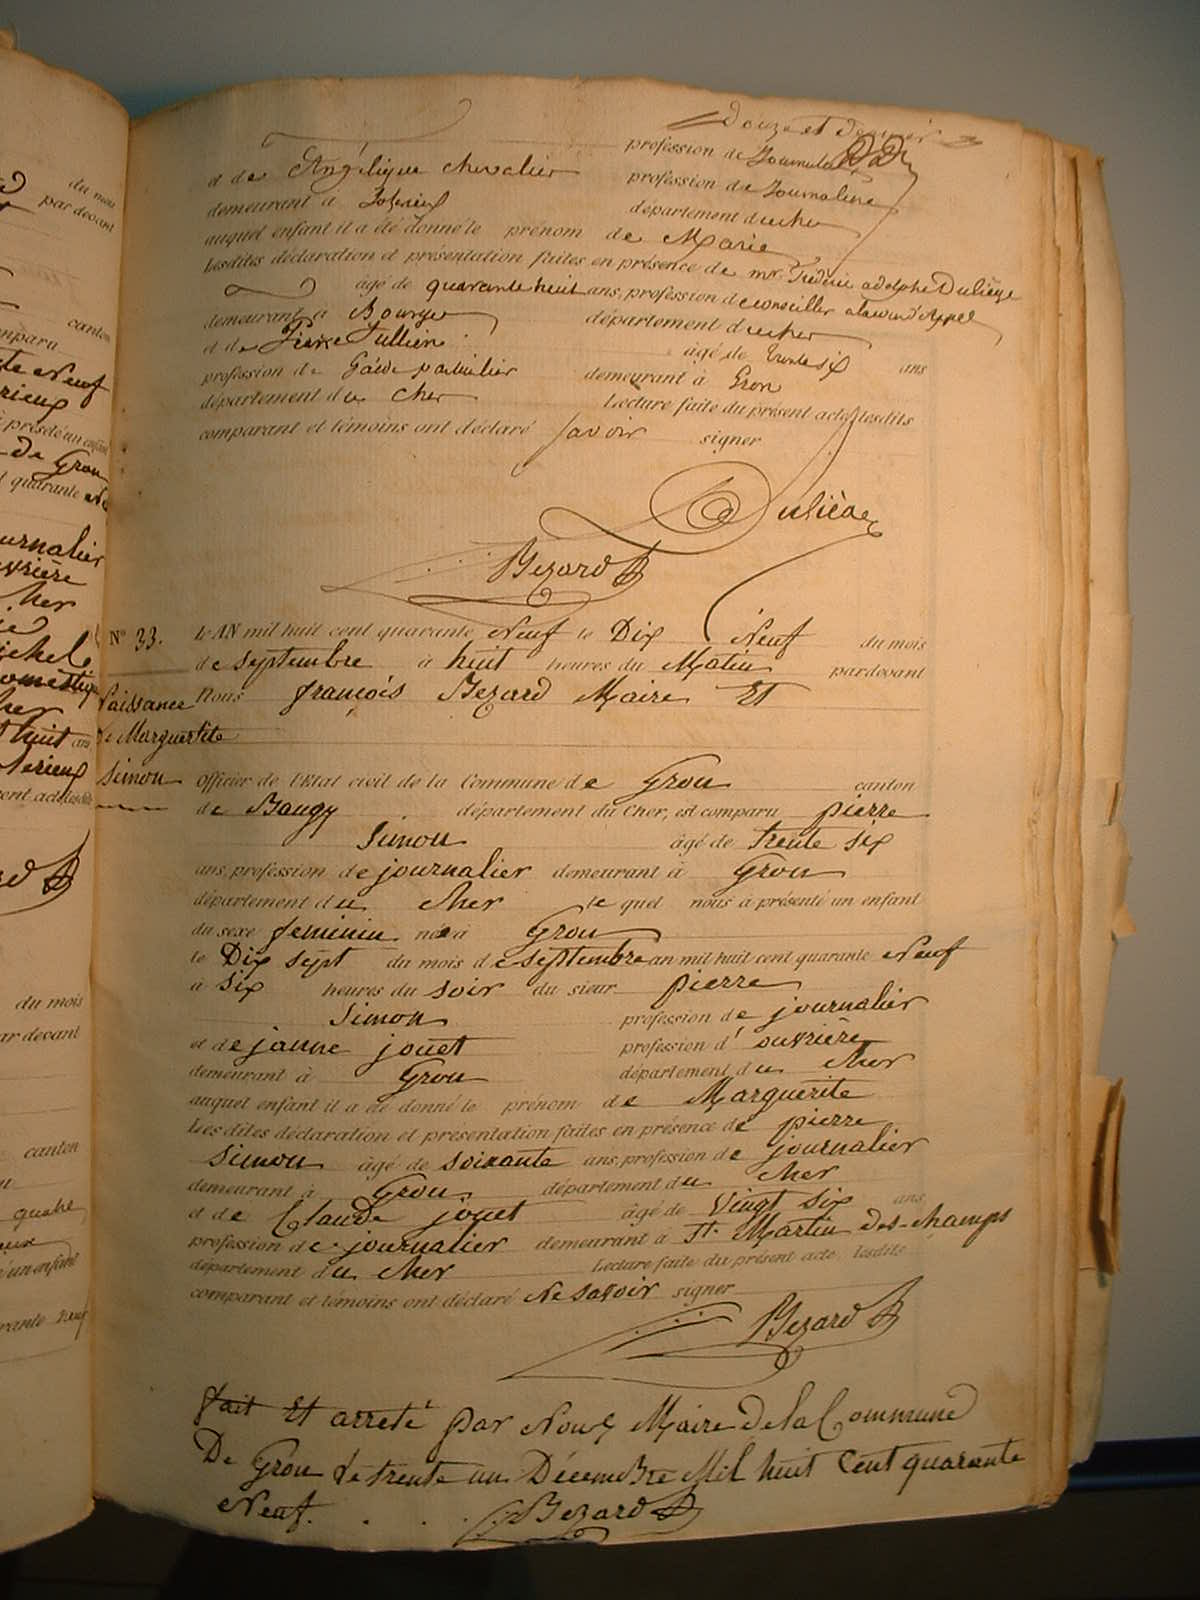 douze et dernier
profession de Journalier
et de Angélique chevalier profession de Journalière
demeurant à département du cher
auquel enfant il a été donné le prénom de Marie
Lesdites déclaration et présentation faites en présence de mr. frédéric adolphe Duliège
âgé de quarante huit ans, profession de conseiller a la cour d'appel
demeurant à Bourges département du cher
et de Pierre Tullier âgé de trente six ans
profession de Garde particulier demeurant à Gron
département du Cher Lecture faite du présent acte, lesdits
comparant et témoins ont déclaré savoir signer
Duliège
Bezard
N° 33. L'AN mil huit cent quarante Neuf le Dix Neuf du mois
de septembre à huit heures du Matin pardevant
Naissance Nous françois Bezard Maire Et
de Marguerite
Simon Officier de l'Etat civil de la Commune de Gron canton
de Baugy département du Cher, est comparu pierre
Simon âgé de trente six
ans, profession de journalier demeurant à Gron
département du Cher le quel nous a présenté un enfant
du sexe feminin née à Gron
le Dix sept du mois de septembre an mil huit cent quarante Neuf
à six heures du soir du sieur pierre
Simon profession de journalier
et de janne jouet profession d'ouvrière
demeurant à Gron département du cher
auquel enfant il a été donné le prénom de Marguerite
Lesdites déclaration et présentation faites en présence de pierre
Simon âgé de soixante ans, profession de journalier
demeurant à Gron département du cher
et de Claude jouet âgé de vingt six ans
profession de journalier demeurant à St. Martin des-champs
département du cher Lecture faite du présent acte lesdits
comparant et témoins ont déclaré Ne savoir signer
Bezard
fait Et arreté par Nous Maire de la Commune
De Gron Le trente un Décembre Mil huit Cent quarante
Neuf. . . . Bezard